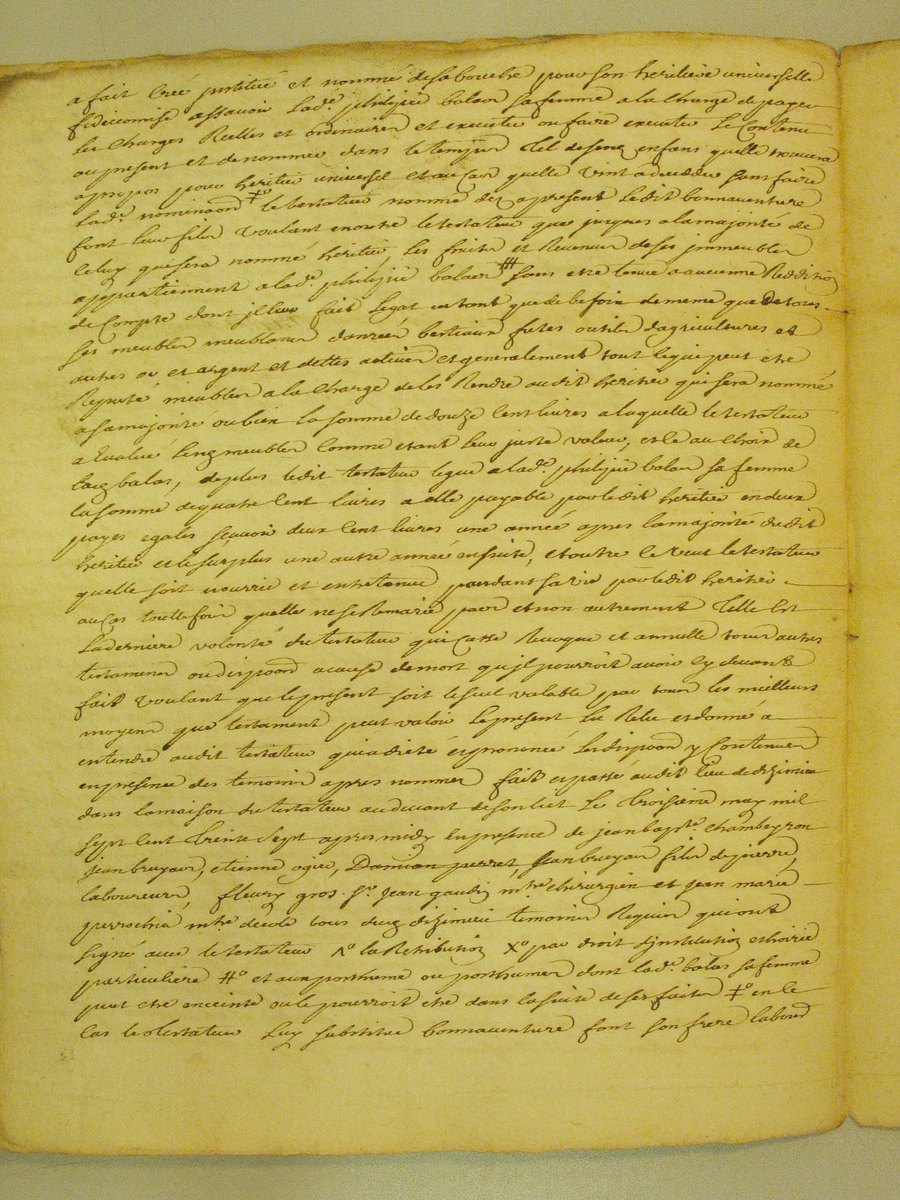 a fait Créé jnstitué et nommé desa bouche pour son heritiere universelle
fideicomise assavoir Lade. philipie balas sa femme a la Charge de payer
Les Charges Reelles et ordinaires et executer ou faire executer Le Contenu
au present et de nommer dans le temps Tel de ses enfans quelle trouvera
apropos pour heritier universel Et au cas quelle vint a deceder sans faire
Lade. nominaon ‡o le testateur nomme dez apresent Ledit bonnaventure
font Leur fils Voulant en outre le testateur que jusques a la majorité de
Celuy qui sera nommé heritier, Les fruits et Revenus de ses jmmeubles
appartiennent a lade. philipie balas ## sans etre tenue a aucunne Reddition
de Compte dont jl luy fait Legat en tant que de besoin de meme que de tous
Ses meubles meublans danrées bestiaux futes outils dagricultures et
autres or et argent et dettes actives et generalement tout ce qui peut etre
Reputé meubles a la Charge de les Rendre audit heritier qui sera nommé
a sa majorité ou bien la somme de douze Cent livres a laquelle le testateur
a Evalué Lesdz meubles Comme etant leur juste valeur, et ce au Choix de
ladz balas, de plus ledit testateur legue a lade. philipie balas sa femme
la somme de quatre Cent livres a elle payable par ledit heritier en deux
payes egales scavoir deux Cent livres une année apres la majorité dudit
heritier et le surplus une autre année ensuite, et outre Ce veut le testateur
quelle soit nourrie et entretenue pendant sa vie par ledit heritier
au cas toutte fois quelle ne se Remarie pas et non autrement Telle Est
La derniere volonté du testateur qui Casse Revoque et annulle tous autres
testamens ou dispoon a cause de mort qu jl pourroit avoir Cy devant
fait Voulant que le present soit le seul valable par tous les meilleurs
moyens que testament peut valoir Le present Lu Relu et donné a
entendre audit testateur qui a dicté et prononcé Les dispoon y Contenues
en presence des temoins apres nommes fait et passé audit lieu de dizimieu
dans la maison du testateur au devant de son lict Le Troisieme may mil
sept Cent Trente Sept apres midy en presence de jean bapte. Chambeyron
jean bruyas, etienne ogier, Damian perret, jean bruyas fils de pierre,
laboureurs, fleury gros. Sr. jean gaudin mtre chirurgien et jean marie
perrochia mtre décole tous dudz dizimieu temoins Requis qui ont
signé avec le testateur Λo la Retribution Xo par droit djnstitution et hoirie
particuliere #o et aux posthume ou posthumes dont lade. balas sa femme
peut etre enceinte ou le pourroit etre dans la suitte de ses faits ‡o en ce
Cas le testateur Luy substitue bonnaventure font son frere laboureur